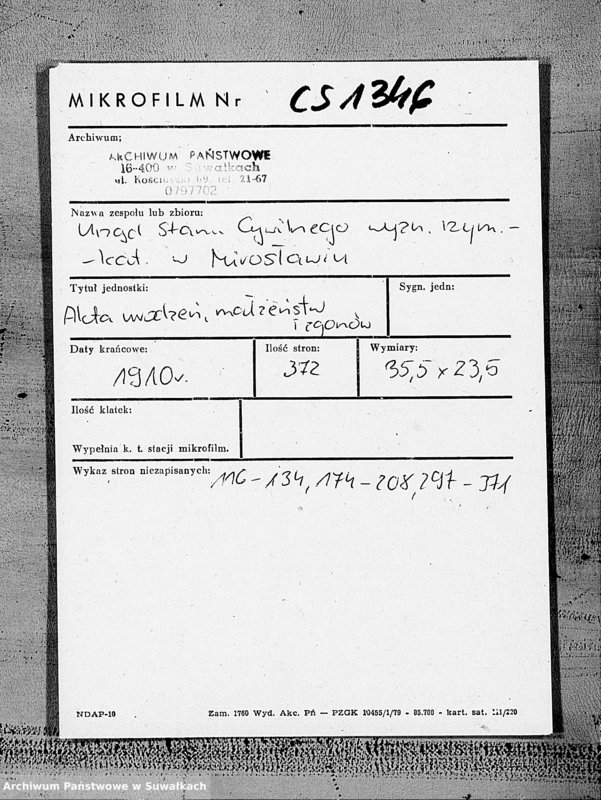 MIKROFILM Nr CS 1346
Archiwum;
ARCHIWUM PAŃSTWOWE
16-400 w Suwałkach
ul. Kościuszki 69, tel. 21-67
0797702
Nazwa zespołu lub zbioru:
Urząd Stanu Cywilnego wyzn. rzym.-
-kat. w Mirosławiu
Tytuł jednostki:
Sygn. jedn:
Akta urodzeń, małżeństw
i zgonów
Daty krańcowe:
Ilość stron:
Wymiary:
1910r.
372
35,5 x 23,5
Ilość klatek:
Wypełnia k. t. stacji mikrofilm.
Wykaz stron niezapisanych: 116-134, 174-208, 297-371
NDAP-10
Zam. 1760 Wyd. Akc. Pń — PZGK 10455/1/79 - 85.700 - kart. sat. III/220
Archiwum Państwowe w Suwałkach